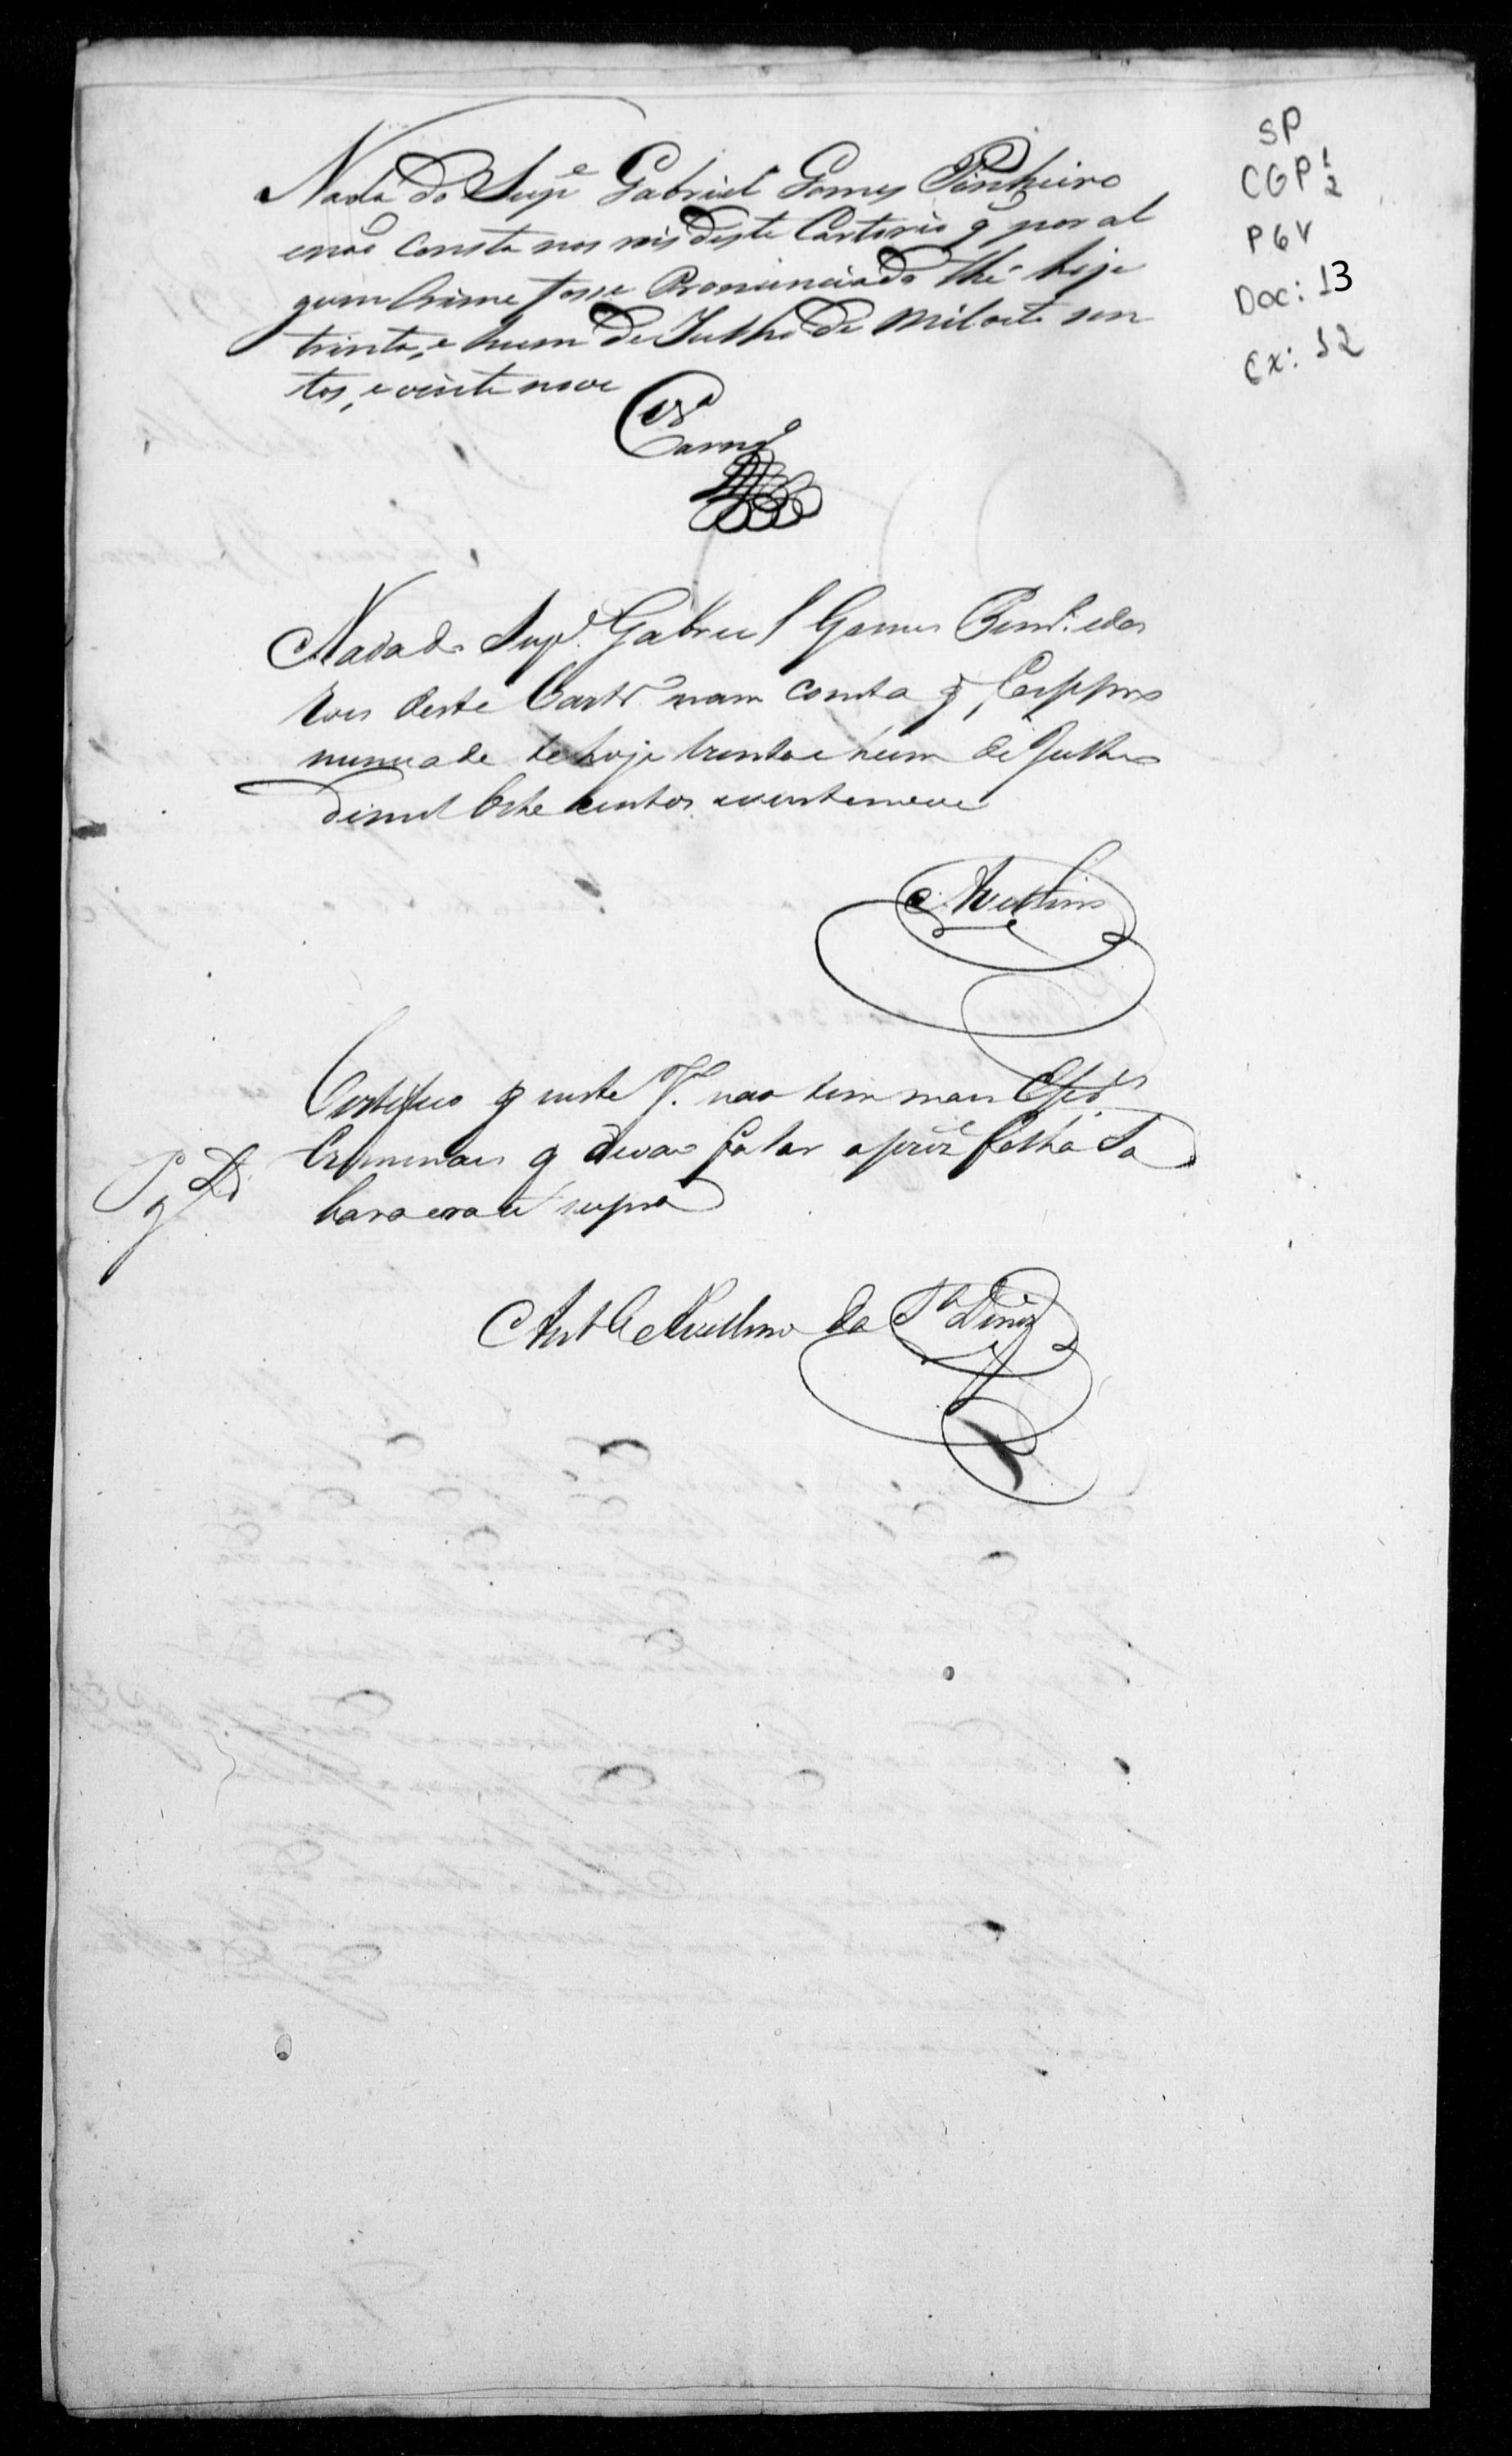 SP
CGP 1/2
P6V
Doc: 13
Cx: 12
Nada do Supe Gabriel Gomes Pinheiro
enão consta nos rois deste Cartorio q por al
gum Crime fosse Pronunciado thé hoje
trinta, e hum de Julho de mil oito sen
tos, e vinte nove
Nada do Supe. Gabriel Gomes Pinhr. e dos
Rois deste Cartr nam consta q
te hoje trinta e hum de Julho
de mil Oito centos evintenove
Avellino
Certifico q nesta Va. nao tem mais
Criminais q devao falar a prezte folha Sa
bara era ut supra
Anto Avellino da Sa Diniz